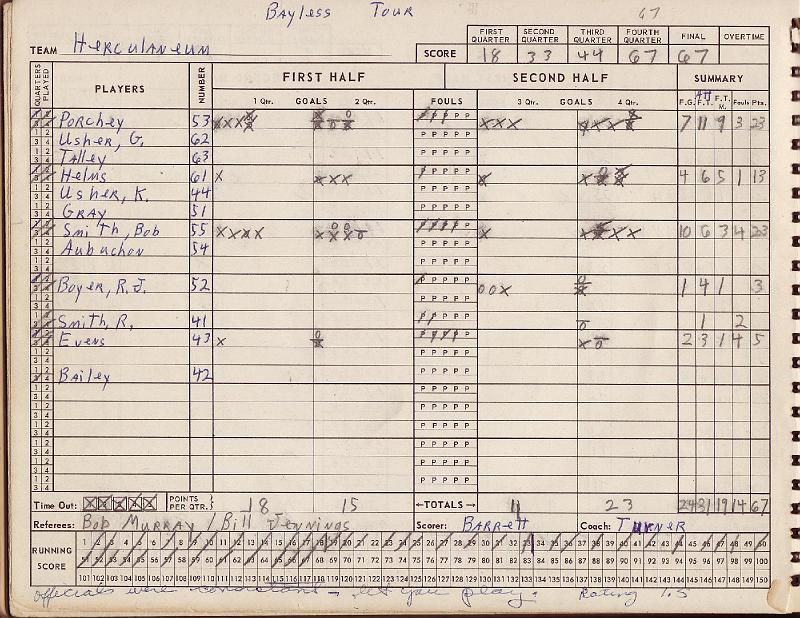 Bayless Tour
67
TEAM Herculaneum SCORE FIRST QUARTER 18 SECOND QUARTER 33 THIRD QUARTER 44 FOURTH QUARTER 67 FINAL 67 OVERTIME
QUARTERS PLAYED PLAYERS NUMBER FIRST HALF SECOND HALF SUMMARY
1 Qtr. GOALS 2 Qtr. FOULS 3 Qtr. GOALS 4 Qtr. F.G. Att F.T. F.T. M. Fouls Pts.
Porchey 53 7 11 9 3 23
Usher, G. 62
Talley 63
Helms 61 4 6 5 1 13
Usher, K. 44
Gray 51
Smith, Bob 55 10 6 3 4 23
Aubuchon 54
Boyer, R.J. 52 1 4 1 3
Smith, R. 41 1 2
Evens 43 2 3 1 4 5
Bailey 42
Time Out: 1 2 3 4 5 POINTS PER QTR. 18 15 ←TOTALS→ 11 23 24 31 19 14 67
Referees: Bob Murray / Bill Jennings Scorer: Barrett Coach: Turner
RUNNING SCORE
1 2 3 4 5 6 7 8 9 10 11 12 13 14 15 16 17 18 19 20 21 22 23 24 25 26 27 28 29 30 31 32 33 34 35 36 37 38 39 40 41 42 43 44 45 46 47 48 49 50
51 52 53 54 55 56 57 58 59 60 61 62 63 64 65 66 67 68 69 70 71 72 73 74 75 76 77 78 79 80 81 82 83 84 85 86 87 88 89 90 91 92 93 94 95 96 97 98 99 100
101 102 103 104 105 106 107 108 109 110 111 112 113 114 115 116 117 118 119 120 121 122 123 124 125 126 127 128 129 130 131 132 133 134 135 136 137 138 139 140 141 142 143 144 145 146 147 148 149 150
officials were consistant - let you play. Rating 1.5